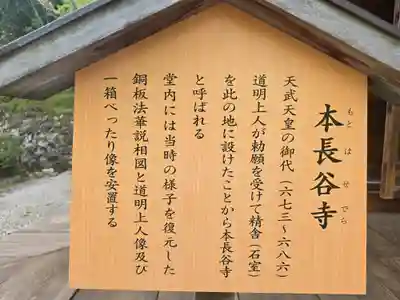 本長谷寺
もと は せ でら
天武天皇の御代（六七三～六八六）
道明上人が勅願を受けて精舎（石室）
を此の地に設けたことから本長谷寺
と呼ばれる
堂内には当時の様子を復元した
銅板法華説相図と道明上人像及び
一箱べったり像を安置する